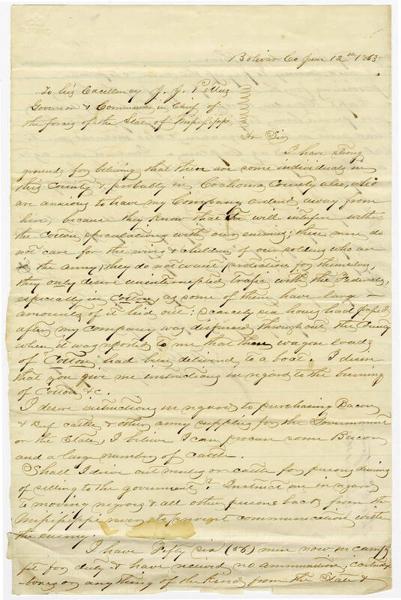 Bolivar Co Jan 12th 1863
To his Excellency J. J. Pettus
Governor & Commander in Chief of
the forces of the State of Mississippi
Dr Sir
I have strong
ground for believing that there are some individuals in
this County & probably in Coahoma County also, who
are anxious to have my Company ordered away from
here, because they know that it will interfere with
the Cotton speculations with our enemy; these men do
not care for the wives & children of our soldiers who are
in the Army, they do not want protection for themselves,
they only desire uninterrupted trafic with the Federals,
especially in Cotton as some of them have large
amounts of it hid out; Scarcely six hours had passed
after my Company was dispersed throughout the County
when it was reported to me that three wagon loads
of Cotton had been delivered to a boat. I desire
that you give me instructions in regard to the burning
of Cotton &c.
I desire instructions in regard to purchasing Bacon
& Beef cattle & other army supplies for the Government
or the State, I believe I can procure some Bacon
and a large number of cattle.
Shall I drive out mules or cattle for persons
of selling to the government & Instruct me in regard
to moving negroes & all other persons back from the
Mississippi river to prevent communication with
the enemy.
I have Fifty six (56) men now in camp
fit for duty & have received no ammunition, cartridge
boxes or anything of the kind from the State &